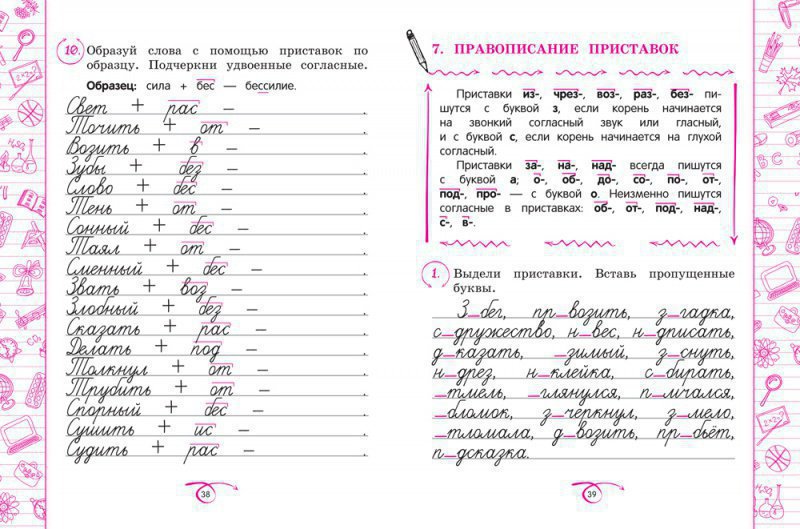 10. Образуй слова с помощью приставок по
образцу. Подчеркни удвоенные согласные.
Образец: сила + бес — бессилие.
Свет + рас –
Точить + от –
Возить + в –
Зубы + без –
Слово + бес –
Тень + от –
Сонный + бес –
Таял + от –
Сменный + бес –
Звать + воз –
Злобный + без –
Сказать + рас –
Делать + под –
Толкнул + от –
Трубить + от –
Спорный + бес –
Сушить + ис –
Судить + рас –
38
7. ПРАВОПИСАНИЕ ПРИСТАВОК
Приставки из-, чрез-, воз-, раз-, без- пи-
шутся с буквой з, если корень начинается
на звонкий согласный звук или гласный,
и с буквой с, если корень начинается на глухой
согласный.
Приставки за-, на-, над- всегда пишутся
с буквой а; о-, об-, до-, со-, по-, от-,
под-, про- — с буквой о. Неизменно пишутся
согласные в приставках: об-, от-, под-, над-,
с-, в-.
1. Выдели приставки. Вставь пропущенные
буквы.
З_бег, пр_возить, з_гадка,
с_дружество, н_вес, н_дписать,
д_казать, _зимый, з_снуть,
н_дрез, н_клейка, с_бирать,
_тмель, _глянулся, п_мчался,
_бломок, з_черкнул, з_мело,
_тломала, д_возить, пр_бьёт,
п_дсказка.
39